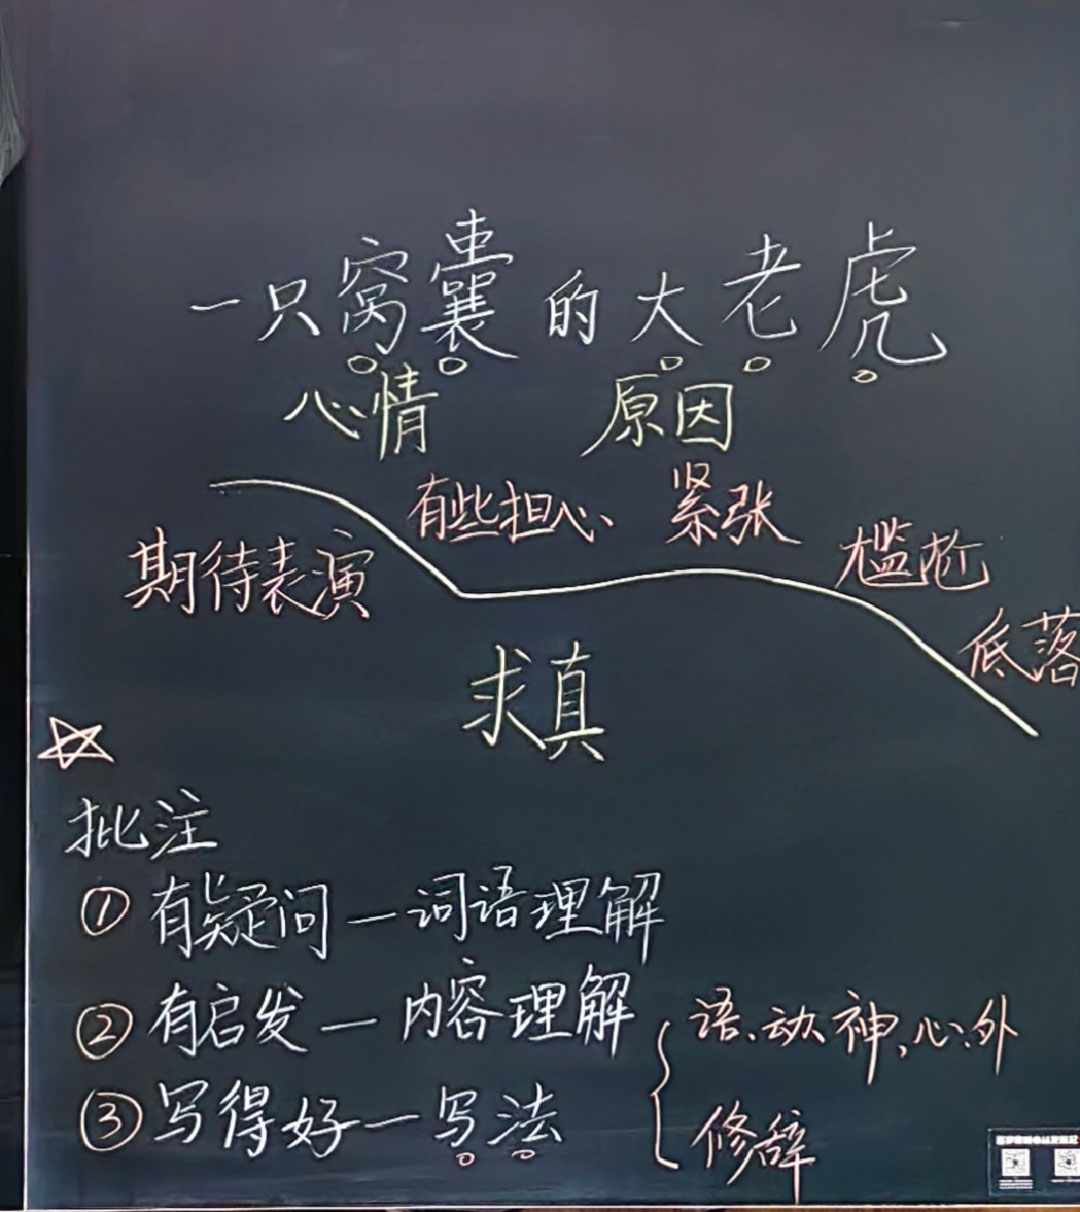 一只窝囊的大老虎
心情 原因
有些担心 紧张
期待表演 尴尬
低落
求真
批注
① 有疑问—词语理解
② 有启发—内容理解
③ 写得好—写法
语、动、神、心、外
修辞